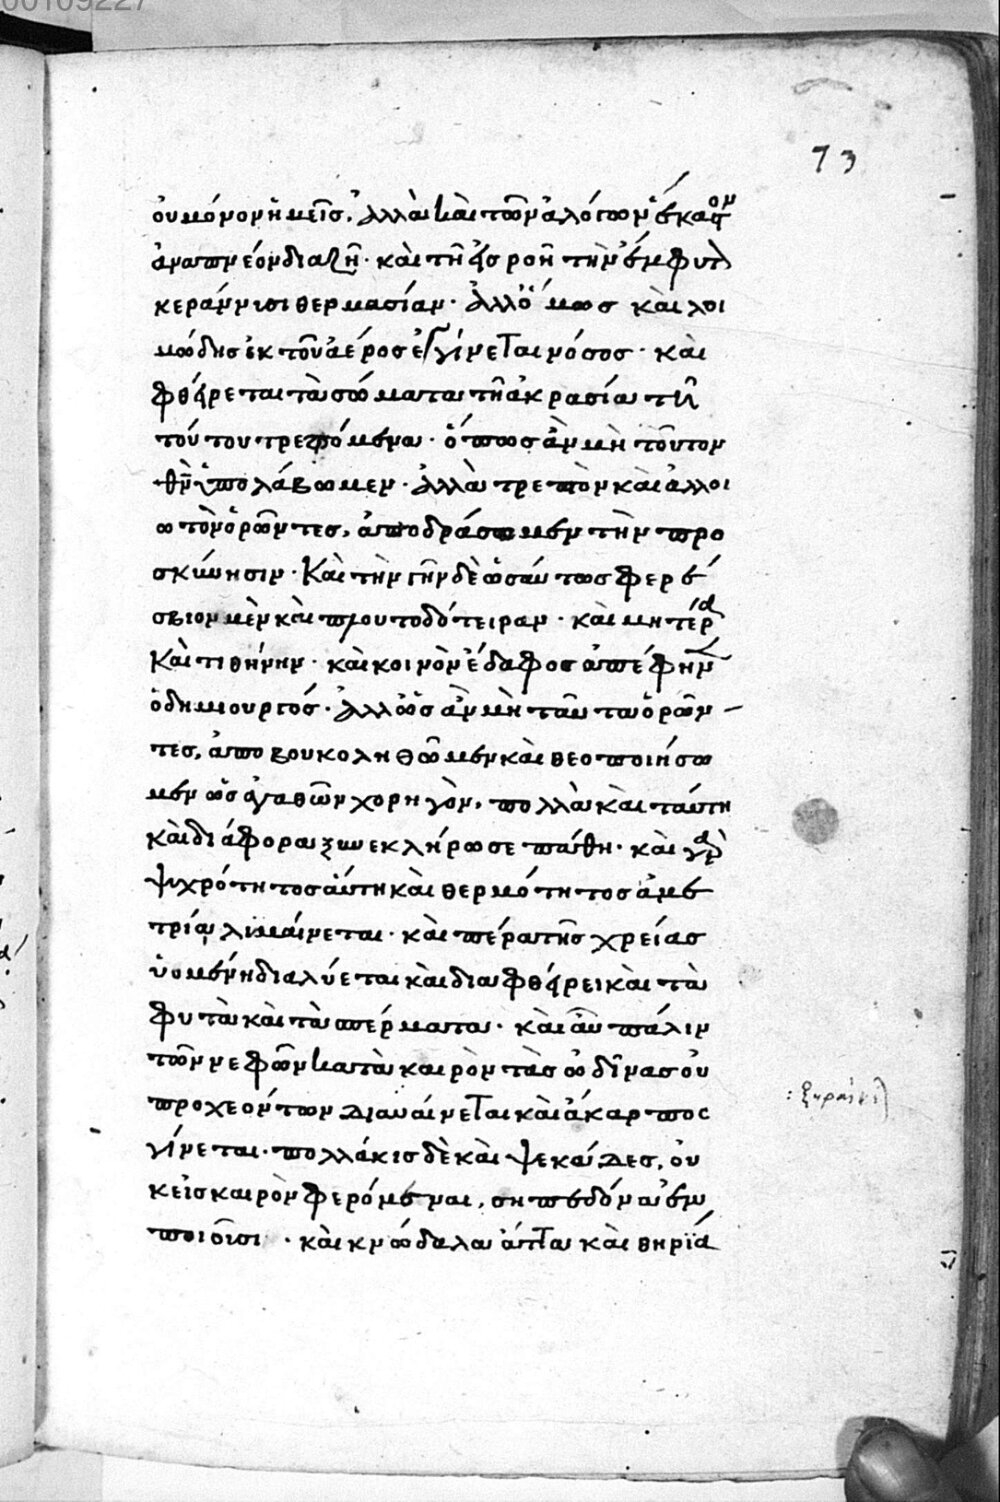 00109227
73
οὐ μόνον ἡμεῖς, ἀλλὰ καὶ τῶν ἀλόγων ἕκαστον
ἀναπνέον διαζῆ· καὶ τῆ εἰσροῆ τὴν ἔμφυτ
κεράννυσι θερμασίαν· ἀλλ' ὅμως καὶ λοι
μώδης ἐκ τοῦ ἀέρος ἐγγίνεται νόσος· καὶ
φθείρεται τὰ σώματα τῆ ἀκρασία τῆ
τούτου τρεπόμενα· ὅπως ἂν μὴ τοῦτον
θν ὑπολάβωμεν· ἀλλὰ τρεπτὸν καὶ ἀλλοι
ωτὸν ὁρῶντες, ἀποδράσωμεν τὴν προ
σκύνησιν· Καὶ τὴν γῆν δὲ ὡσαύτως φερέ
σβιον μὲν καὶ πλουτοδότειραν· καὶ μητέρα
καὶ τιθήνην· καὶ κοινὸν ἔδαφος ἀπέφην
ὁ δημιουργός· ἀλλ' ὡς ἂν μὴ ταῦτα ὁρῶν
τες, ἀποβουκοληθῶμεν καὶ θεοποιήσω
μεν ὡς ἀγαθῶν χορηγὸν, πολλὰ καὶ ταύτη
καὶ διάφορα ξυνεκλήρωσε πάθη· καὶ γὰρ
ψυχρότητος αὕτη καὶ θερμότητος ἀμε
τρία λυμαίνεται· καὶ πέρα τῆς χρείας
ὑομένη διαλύεται καὶ διαφθείρει καὶ τὰ
φυτὰ καὶ τὰ σπέρματα· καὶ αὖ πάλιν
τῶν νεφῶν κατὰ καιρὸν τὰς ὠδῖνας οὐ
προχεόντων διαυαίνεται καὶ ἄκαρπος
γίνεται· πολλάκις δὲ καὶ ψεκάδες, οὐ
κ εἰς καιρὸν φερόμεναι, σηπεδόνα ἐμ
ποιοῦσι· καὶ κνώδαλα ἄττα καὶ θηρία